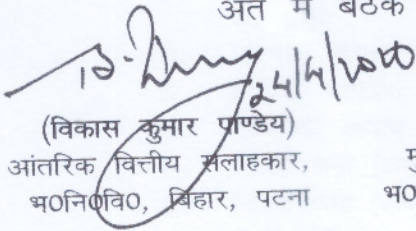 अंत में बैठक
24/4/2020
(विकास कुमार पाण्डेय)
आंतरिक वित्तीय सलाहकार,
भ0नि0वि0, बिहार, पटना भ0